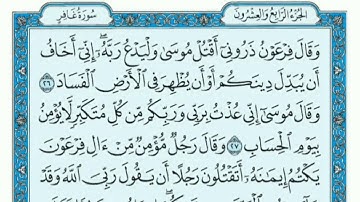 الجزء الرابع والعشرون سورة غافر
وَقَالَ فِرْعَوْنُ ذَرُونِي أَقْتُلْ مُوسَىٰ وَلْيَدْعُ رَبَّهُۥٓ ۖ إِنِّي أَخَافُ
أَن يُبَدِّلَ دِينَكُمْ أَوْ أَن يُظْهِرَ فِي الْأَرْضِ الْفَسَادَ ٢٦
وَقَالَ مُوسَىٰ إِنِّي عُذْتُ بِرَبِّي وَرَبِّكُم مِّن كُلِّ مُتَكَبِّرٍ لَّا يُؤْمِنُ
بِيَوْمِ الْحِسَابِ ٢٧ وَقَالَ رَجُلٌ مُّؤْمِنٌ مِّنْ ءَالِ فِرْعَوْنَ
يَكْتُمُ إِيمَٰنَهُۥٓ أَتَقْتُلُونَ رَجُلًا أَن يَقُولَ رَبِّيَ اللَّهُ وَقَدْ